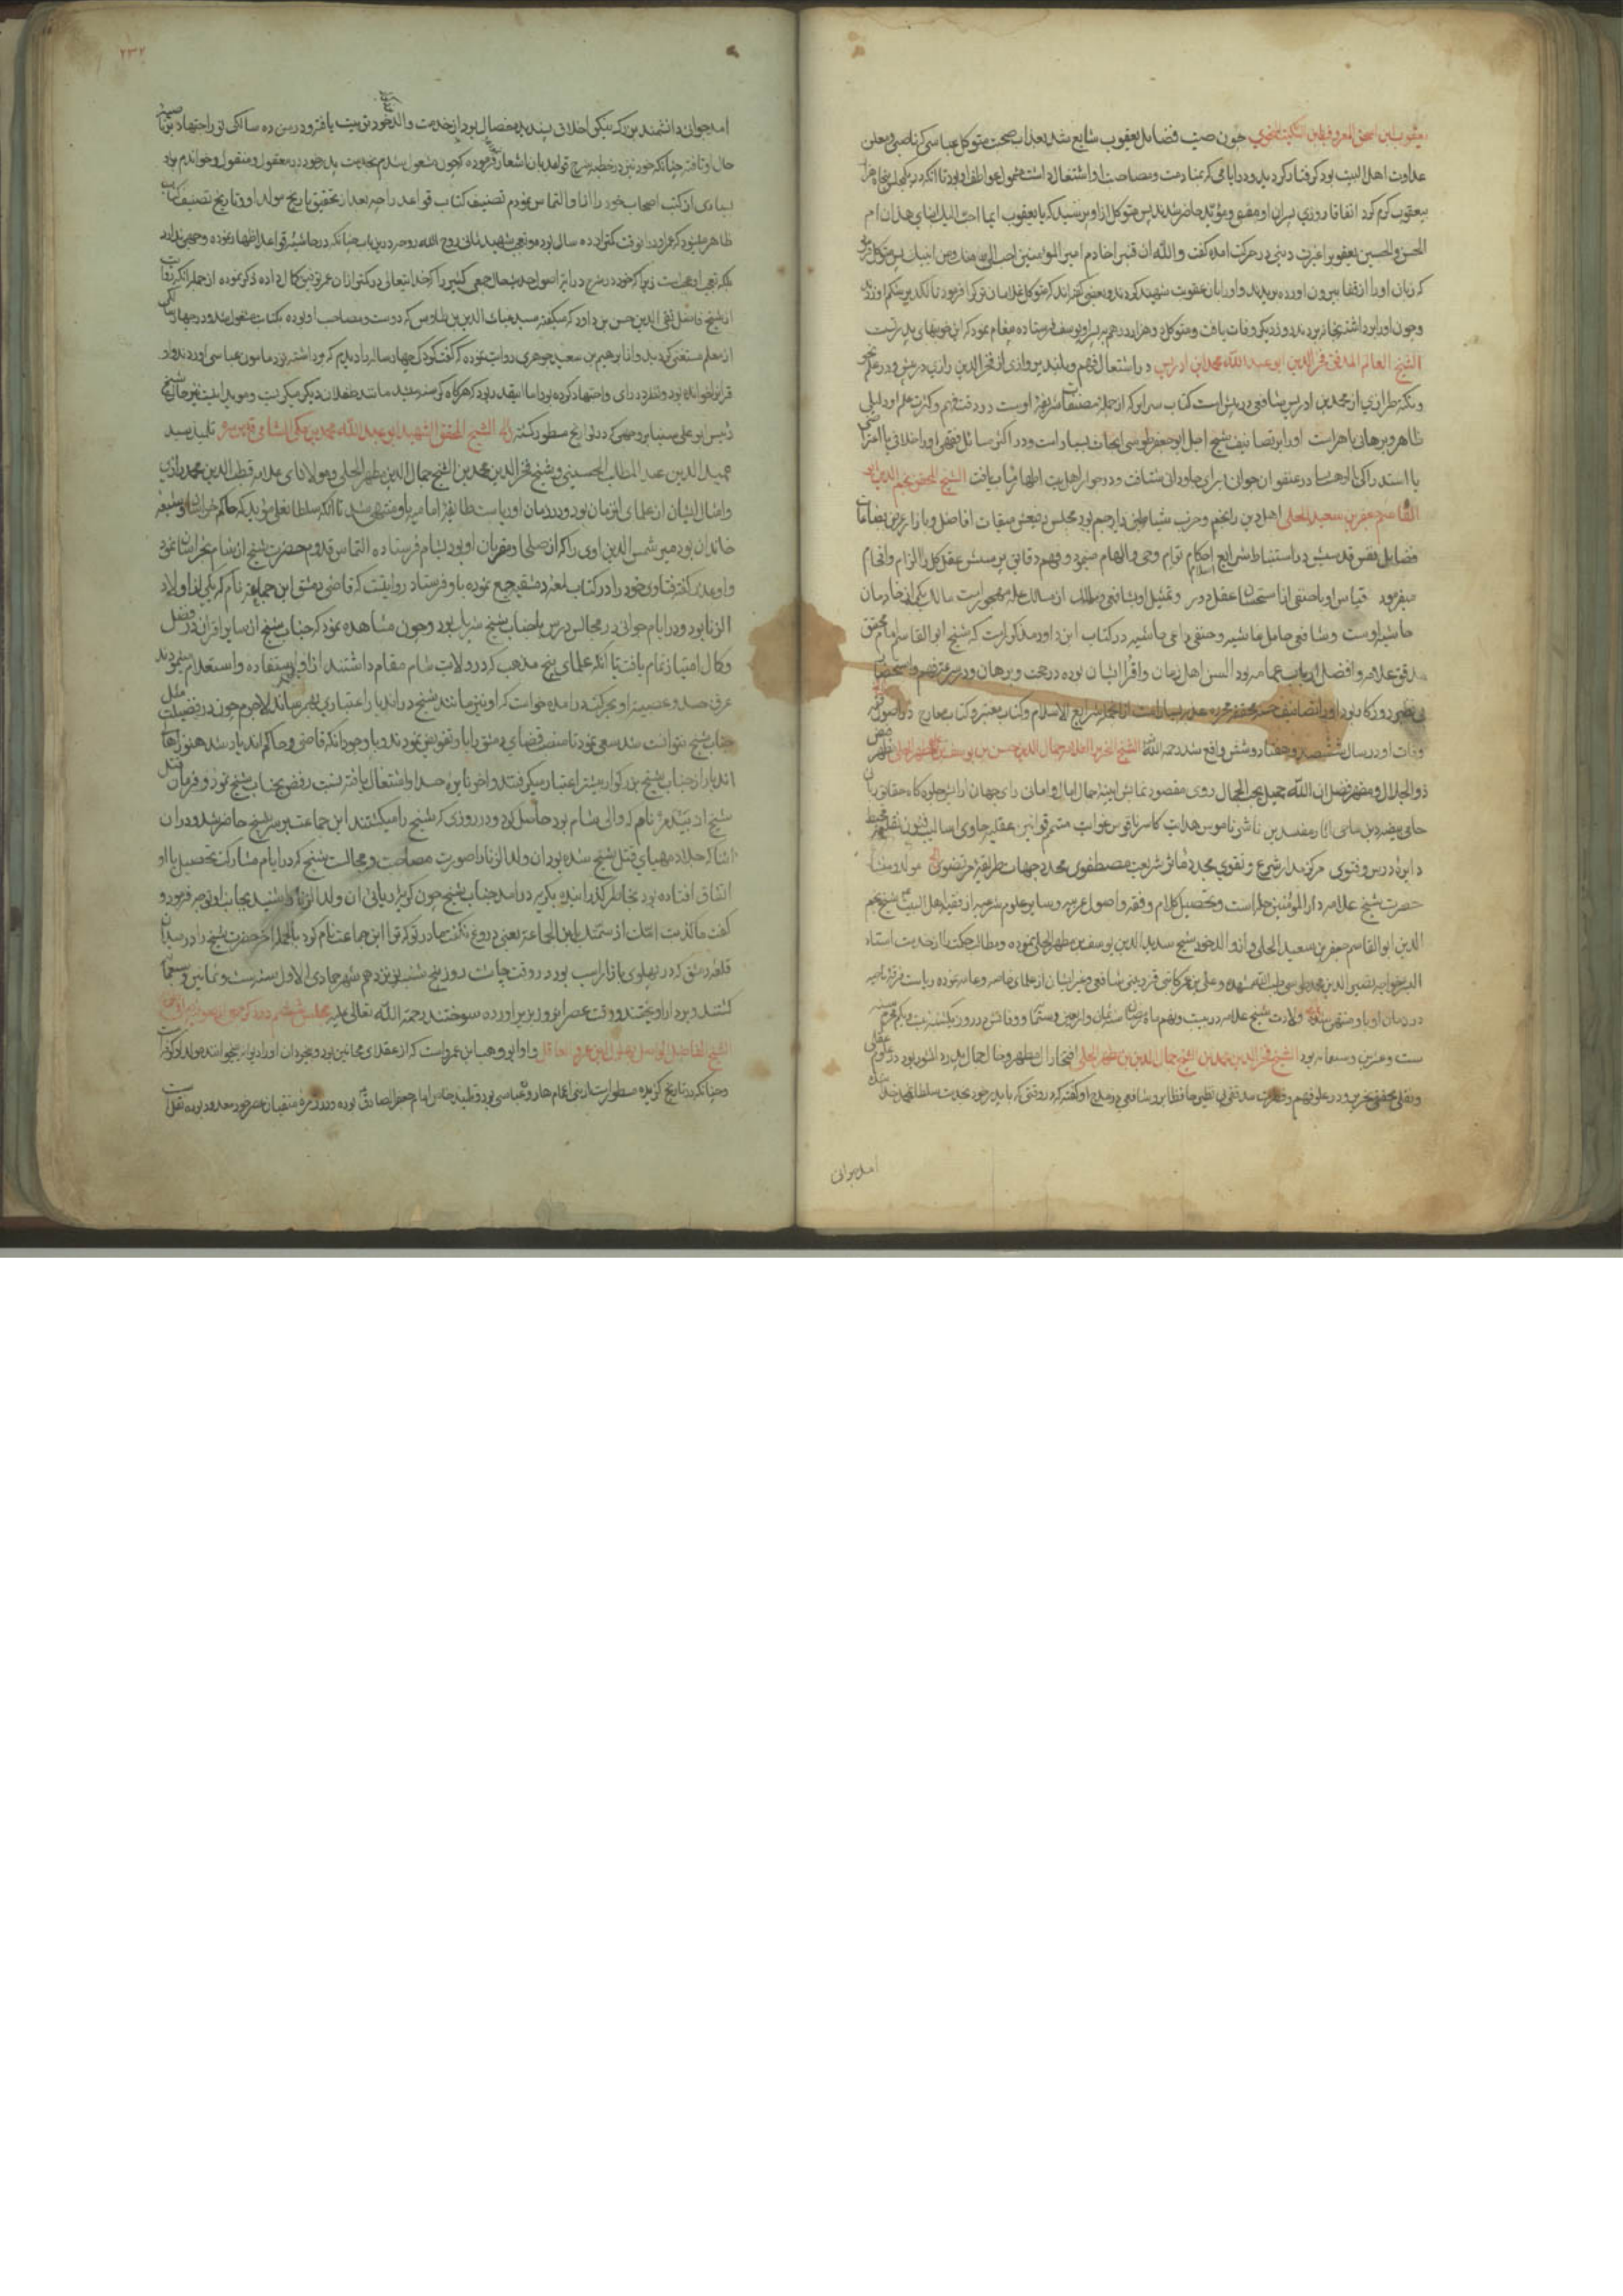 یعقوب بن اسحق المعروف بابن السکیت النحوی چون صیت فضایل یعقوب شایع شد بعذاب صحبت متوکل عباسی که ناصبی و معلن
عداوت اهل البیت بود گرفتار کردید و در ایامی که بمنادمت و مصاحبت او اشتغال داشت
یعقوب کرم کرد اتفاقا روزی پسران او معتز و مؤید حاضر شدند پس متوکل از او پرسید که یا یعقوب ایما احب الیک ابنای هذان ام
الحسن و الحسین یعقوب را غیرت دینی در حرکت امده گفت والله ان قنبرا خادم امیر المؤمنین احب الی منهما و من ابیهما پس متوکل
که زبان او را از قفا بیرون اورده بریدند و او را بان عقوبت شهید کردند و بعضی گفته‌اند که متوکل غلامان ترک را فرمود تا لکد بر شکم او زدند
و چون او را برداشته بخانه بردند روز دیگر وفات یافت و متوکل ده هزار درهم به پسر او یوسف فرستاده پیغام نمود که این خونبهای پدر تست
الشیخ العالم المدقق فخر الدین ابو عبد الله محمد ابن ادریس در اشتعال فهم و بلند پروازی از فخر الدین رازی در پیش و در علم
و نکته طرازی از محمد بن ادریس شافعی در پیش است کتاب سرایر که از جمله مصنفات شریفه اوست در دقت فهم و کثرت علم او دلیلی
ظاهر و برهانی باهر است او را بر تصانیف شیخ اجل ابو جعفر طوسی ابحاث بسیار است و در اکثر مسائل فقهی او را خلافی یا اعتراضی
یا استدراکی در عنفوان جوانی بدان شتافت و در جوار اهل بیت اطهار الشیخ المحقق نجم الدین ابو
القاسم جعفر بن سعید الحلی اهل دین را نجم و حزب شیاطین را رجم بود
فضایل نفس قدسیش در استنباط شرایع احکام توام وحی و الهام مینمود و فهم دقایق پرستش عقل کل را الزام و افحام
میفرمود قیاس او با حنفی از استحسان عقل دور و تمثیل او بشافعی مالک یکی از خادمان
حاشیه اوست و شافعی حامل غاشیه و حنفی راعی ماشیه در کتاب ابن داود مذکور است که شیخ ابو القاسم امام محقق
مدقق علامه و افضل ارباب عمامه بود السن اهل زمان و اقرا ایشان بوده در حجت و برهان و در سرعت فهم و استحضار
بی نظیر روزگار بود او را تصانیف حسن محققه محرره عذبه بسیار است از انجمله شرایع الاسلام و کتاب معتبر و کتاب معارج در اصول فقه
وفات او در سال ششصد و هفتاد و شش واقع شد رحمه الله الشیخ العلامه جمال الدین حسن بن یوسف بن مطهر الحلی مظهر
ذو الجلال و مظهر فضل ان الله جمیل یحب الجمال روی مقصود نمایش ایینه جمال امال و امانی رای جهان ارایش جلوه کاه حقایق
حامی بیضه دین ماحی اثار مفسدین ناشر ناموس هدایت کاسر ناقوس غوایت متمم قوانین عقلیه حاوی اسالیب فنون نقلیه
دایره درس و فتوی مرکز مدار شرع و تقوی مجدد ماثر شریعت مصطفوی محدد جهات طریقه مرتضوی مولد و منشا
حضرت شیخ علامه دار المؤمنین حله است و تحصیل کلام و فقه و اصول عربیه و سایر علوم شرعیه از فقیه اهل البیت شیخ نجم
الدین ابو القاسم جعفر بن سعید الحلی و از والد خود شیخ سدید الدین یوسف بن مطهر الحلی نموده و مطالب حکمت را از خدمت استاد
البشر خواجه نصیر الدین محمد طوسی و علی بن عمر کاتبی قزوینی شافعی و غیر ایشان از علمای خاصه و عامه نموده ریاست فرقه ناجیه
در زمان او باو منتهی شد ولادت شیخ علامه در بیست و نهم ماه رمضان سنه ثمان و اربعین و ستمائه و وفاتش در روز یکشنبه بیست و یکم محرم سنه
ست و عشرین و سبعمائه بود الشیخ فخر الدین محمد بن الشیخ جمال الدین بن مطهر الحلی افتخار ال مطهر و خال جمال پدر دانشور بود در علوم عقلی
و نقلی محقق نحریر و در علو فهم و فطرت مدققی بی نظیر حافظ ابرو شافعی در مدح او گفته که در وقتی که با پدر خود بخدمت سلطان محمد خدابنده
امد جوانی
۲۳۲
امد جوانی دانشمند بزرگ نیکو اخلاق پسندیده خصال بود از خدمت والد خود تربیت یافته و در سن ده سالگی نور اجتهاد از ناصیه
حال او تافته چنانکه خود نیز در خطبه شرح قواعد بان اشعار فرموده که چون مشغول شدم بخدمت پدر خود در معقول و منقول و خواندم بر او
بسیاری از کتب اصحاب خود را از او التماس نمودم تصنیف کتاب قواعد را چه بعد از تحقیق تاریخ مولد او و تاریخ تصنیف کتاب
ظاهر میشود که عمر او در انوقت کمتر از ده سال بوده و تعجب شهید ثانی روح الله روحه درین باب چنانکه در حاشیه قواعد اظهار نموده وجهی ندارد
بلکه تعجب از عجب است زیرا که خود در شرح درایه اصول حدیث حال جمعی کثیر را که خدایتعالی در کمتر از ان عمر توفیق کمال داده ذکر نموده از جمله انکه روایت
از شیخ فاضل تقی الدین حسن بن داود که میگفته سید غیاث الدین بن طاوس که دوست و مصاحب او بوده بکتابت مشغول شد و در چهار سالگی
از معلم مستغنی کردید و از ابراهیم بن سعید جوهری روایت نموده که گفت کودکی چهار ساله را دیدم که برداشته نزد مامون عباسی اوردند و او
قران خوانده بود و نظر در رای و اجتهاد کرده بود اما اینقدر بود که هرگاه گرسنه میشد مانند طفلان دیگر میگریست و مؤید اینست نیز حال شیخ
رئیس ابو علی سینا بر وجهی که در تواریخ مسطور گشته الشیخ المحقق الشهید ابو عبد الله محمد بن مکی الشامی تلمیذ سید
عمید الدین عبد المطلب الحسینی و شیخ فخر الدین محمد بن الشیخ جمال الدین مطهر الحلی و مولانای علامه قطب الدین محمد رازی
و امثال ایشان از علمای انزمان بود و در زمان او ریاست طایفه امامیه باو منتهی شد تا انکه سلطان علی مؤید که حاکم خراسان و شیعه
خاندان بود میر شمس الدین اوی را که از صلحا و مقربان او بود بشام فرستاده التماس قدوم حضرت شیخ از شام بخراسان نمود
و او عذر گفته فتاوی خود را در کتاب لمعه دمشقیه جمع نموده باو فرستاد روایتست که قاضی دمشق ابن جماعه نام که یکی از اولاد
الزنا بود و در ایام جوانی در مجالس درس با جناب شیخ شریک بود و چون مشاهده نمود که جناب شیخ از سایر اقران در فضل
و کمال امتیاز تمام یافت تا انکه علمای پنج مذهب که در ولایت شام مقام داشتند از او استفاده و استعلام مینمودند
عرق حسد و عصبیت او بحرکت درامده خواست که او نیز مانند شیخ در اندیار اعتباری بهم رساند لاجرم چون در فضیلت مثل
جناب شیخ نتوانست شد سعی نمود تا منصب قضای دمشق را باو تفویض نمودند و باوجود انکه قاضی و حاکم اندیار شد هنوز اهالی
اندیار از جناب شیخ بزرگوار بیشتر اعتبار میگرفتند و اخر نایره حسد او اشتعال یافته نسبت رفض بجناب شیخ نمود و فرمان قتل
شیخ از بیدمر نام که والی شام بود حاصل کرد و در روزی که شیخ را میکشتند ابن جماعت بر سر شیخ حاضر شد و در ان
اثنا که جلاد مهیای قتل شیخ شده بود ان ولد الزنا را صورت مصاحبت و مجالست شیخ که در ایام مشارکت تحصیل با او
اتفاق افتاده بود بخاطر گذرانیده بگریه درامد جناب شیخ چون گریه ریائی ان ولد الزنا را شنید بجانب او توجه فرمود و
گفت ما کذبت امک اذ سمتک ابن الجماعه یعنی دروغ نگفت مادر تو که ترا ابن جماعت نام کرد بالجمله اخر حضرت شیخ را در میدان
قلعه دمشق که در پهلوی بازار اسب بود در وقت چاشت روز پنجشنبه نوزدهم شهر جمادی الاول سنه ست و ثمانین و سبعمائه
کشتند و بر دار اویختند و وقت عصر انروز بزیر اورده سوختند رحمه الله تعالی علیه مجلس ششم در ذکر جمعی از صوفیه
الشیخ الفاضل الواصل بهلول ابن عمرو العاقل و او ابو وهیب ابن عمرو است که از عقلای مجانین بود و بیخردان او را دیوانه میخواندند مولد او کوفه است
و چنانکه در تاریخ گزیده مسطور است از بنی اعمام هارون عباسی بود و تلمیذ خاص امام جعفر الصادق بوده و در زمره متقیان عصر خود معدود بوده نقلست